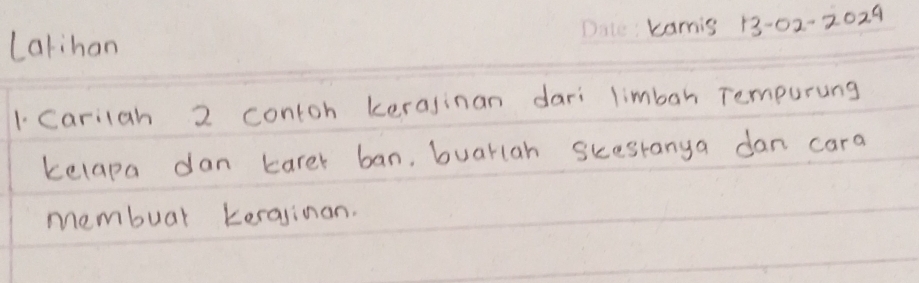 Latihan
Date: Kamis 13-02-2029
1. Carilah 2 contoh kerajinan dari limbah Tempurung
kelapa dan karet ban. buatlah skestanya dan cara
membuat kerajinan.